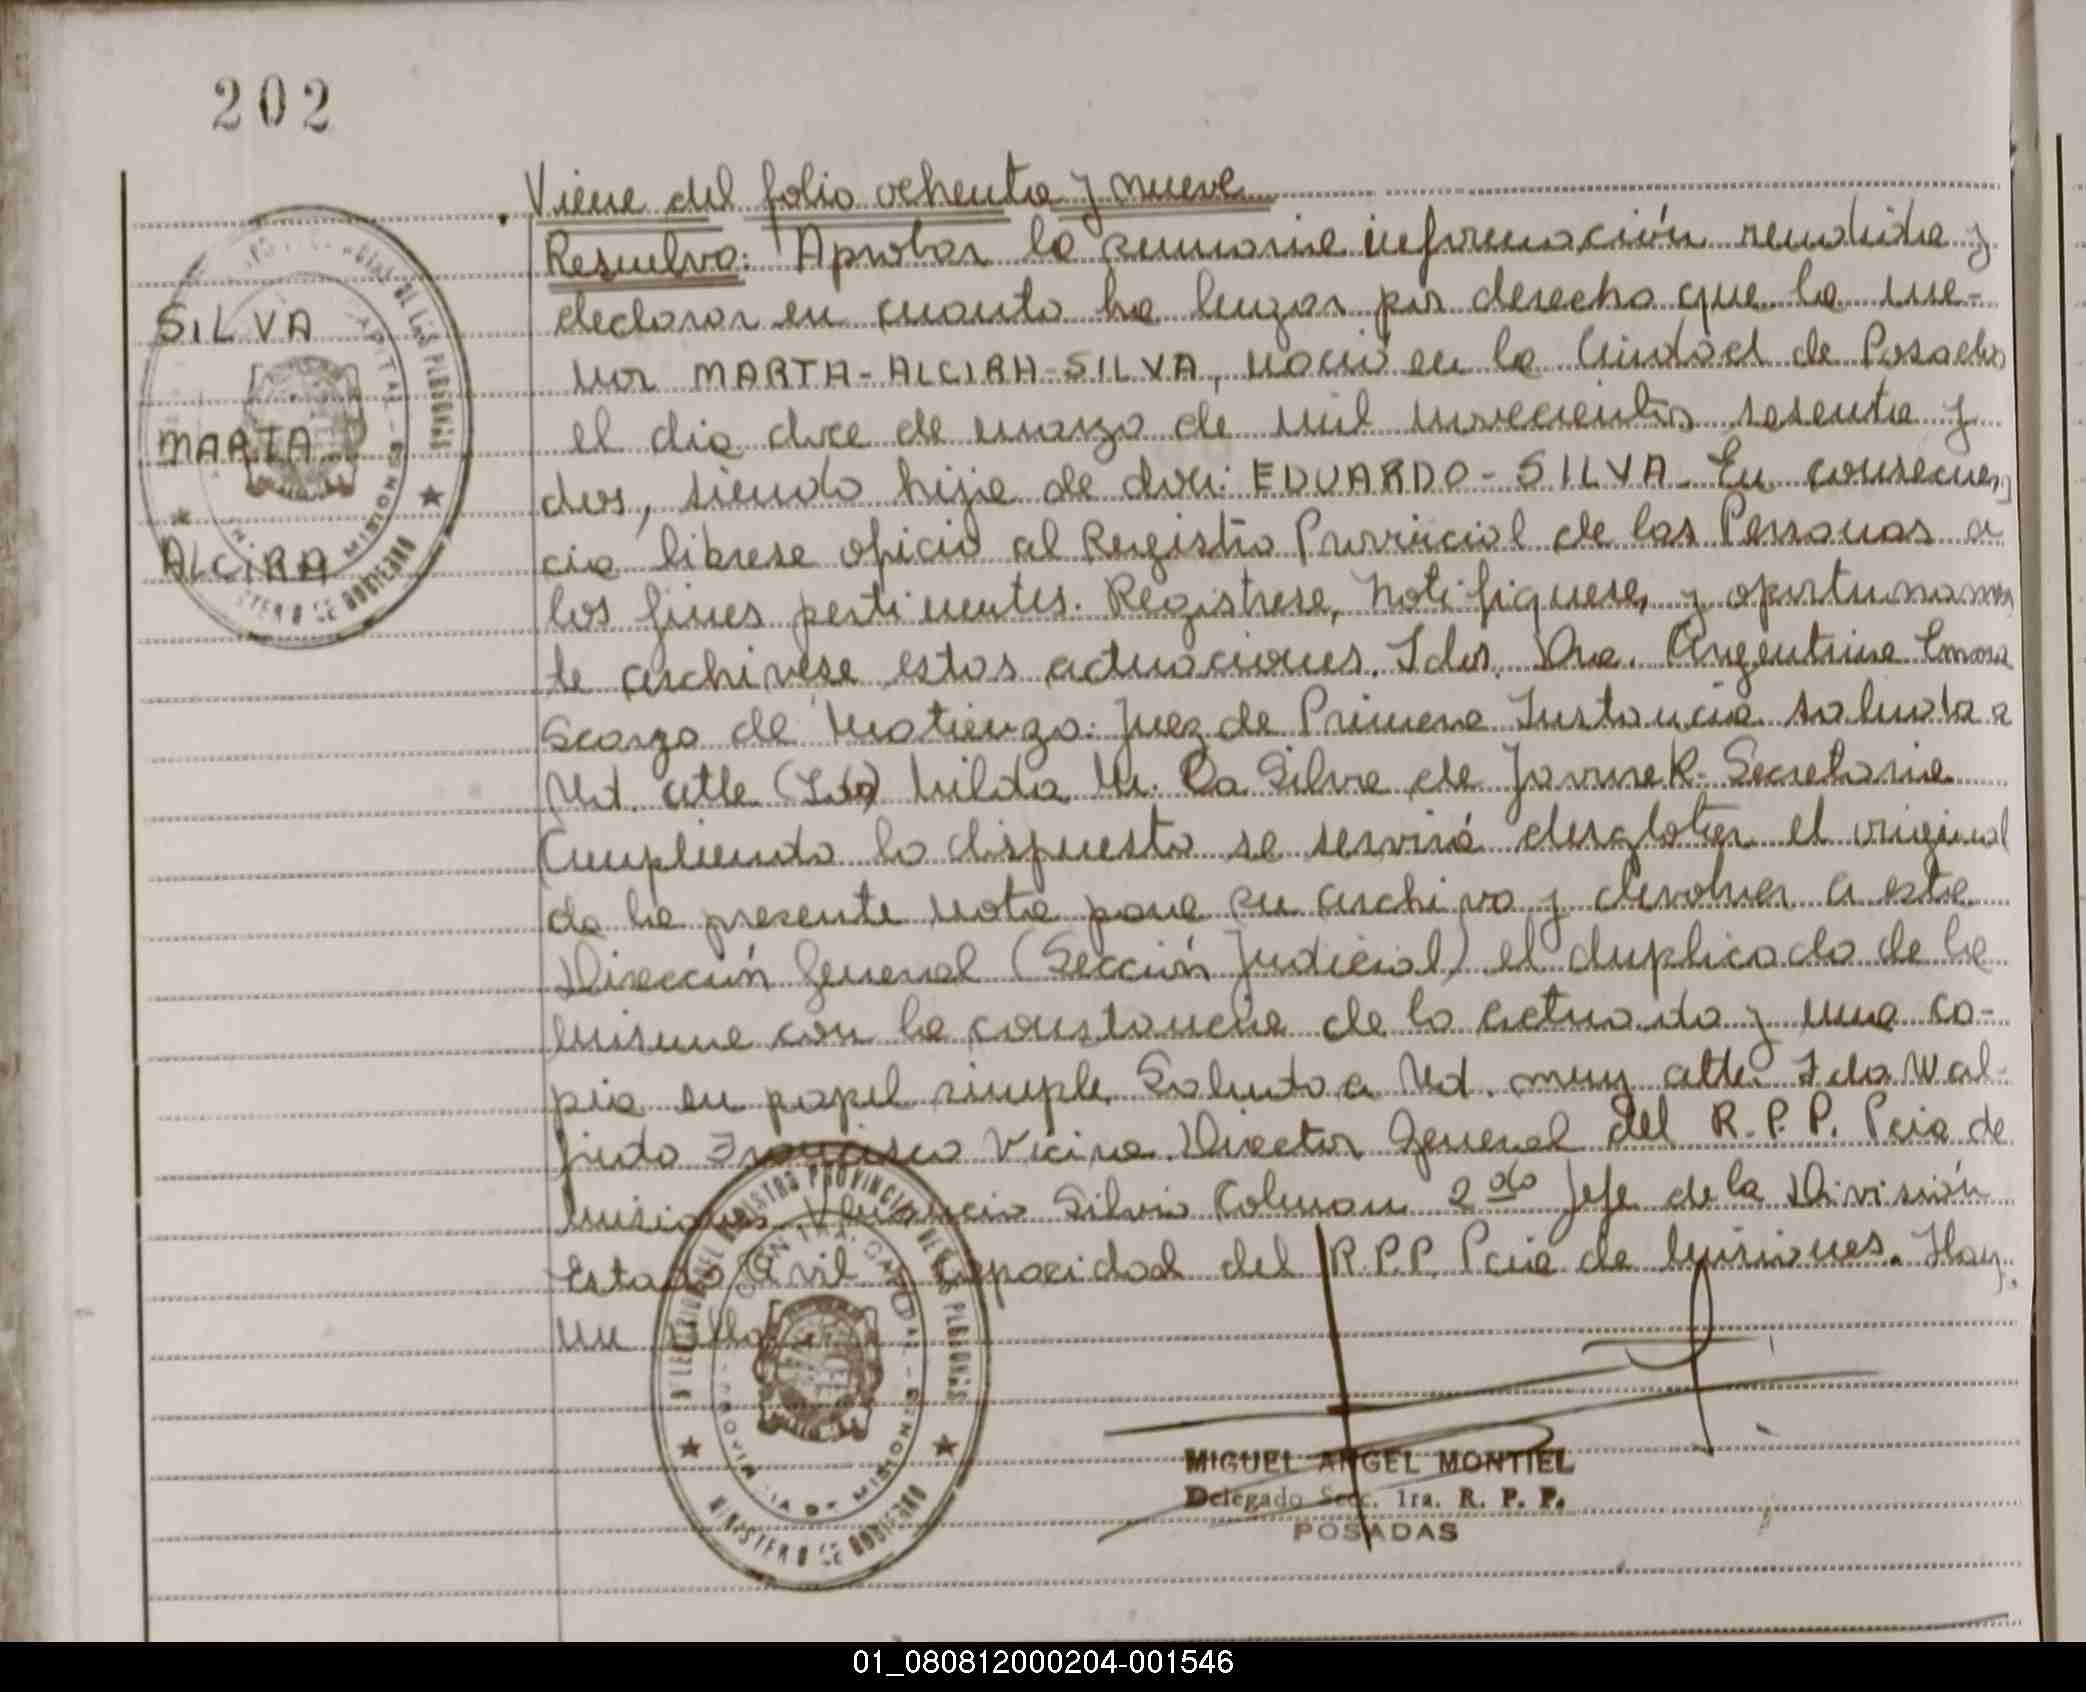 202
Viene del folio ochenta y nueve
SILVA
MARTA
ALCIRA
Resuelvo: Aprobar la sumaria información rendida y
declarar en cuanto ha lugar por derecho que la me-
nor MARTA-ALCIRA-SILVA, nació en la Ciudad de Posadas
el dia doce de marzo de mil novecientos sesenta y
dos, siendo hija de don: EDUARDO-SILVA. En consecuen
cia librese oficio al Registro Provincial de las Personas a
los fines pertinentes. Registrese, notifiquese, y oportunamen
te archivese estas actuaciones. Fdo. Dra. Argentina
Scarzo de Matienzo. Juez de Primera Instancia saluda a
Ud. atte (Fdo) Nilda M. Da Silva de Secretaria
Cumpliendo lo dispuesto se servirá desglosar el original
de la presente nota para su archivo y devolver a esta
Dirección General (Sección Judicial) el duplicado de la
misma con la constancia de lo actuado y una co-
pia en papel simple. Saludo a Ud. muy atte. Fdo Wal-
Francisco Vicina. Director General del R.P.P. Pcia de
Misiones. Silvio Colman 2do Jefe de la División
Estado Civil y Capacidad del R.P.P. Pcia de Misiones. Hay
un sello.
DIRECCION GRAL. REGISTRO PROVINCIAL DE LAS PERSONAS
PROVINCIA DE MISIONES
MINISTERIO DE GOBIERNO
MIGUEL ANGEL MONTIEL
Delegado Secc. 1ra. R. P. P.
POSADAS
01_080812000204-001546